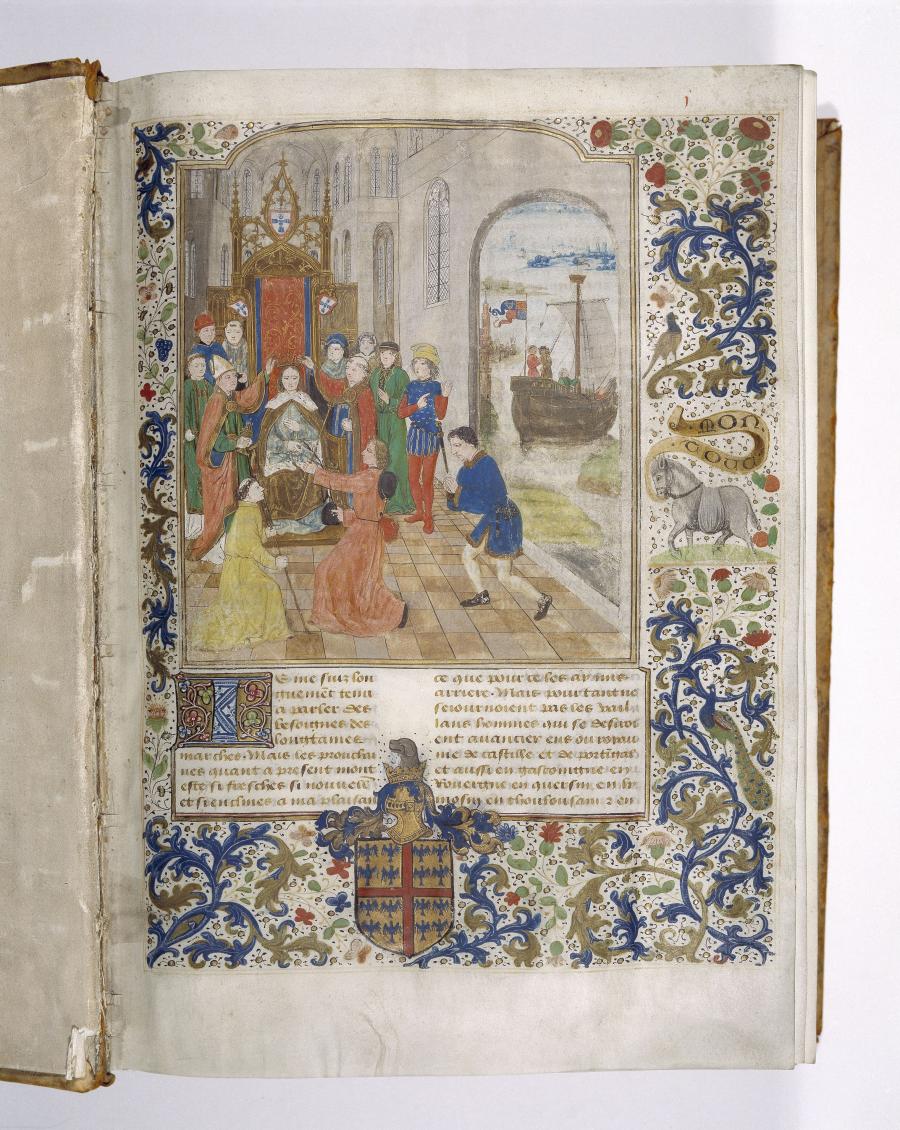 MON
E me suiz lon
guemēt tenu
a parler des
besongnes des
loingtaines
marches Mais les prouchai
nes quant a present mont
este si fresches si nouuelles
et si enclines a ma plaisan
ce que pour ce les ay mis
arriere Mais pour tant ne
seiournoient pas les vail
lans hommes qui se desiroi
ent auancier ens ou royau
me de castille et de portingal
et aussi en gascoingne en
Rouergue en quersin en li
mosin en thoulousain et en